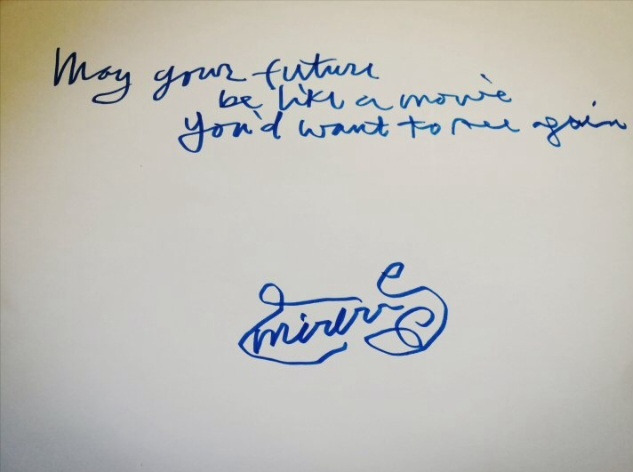 May your future
be like a movie
you'd want to see again